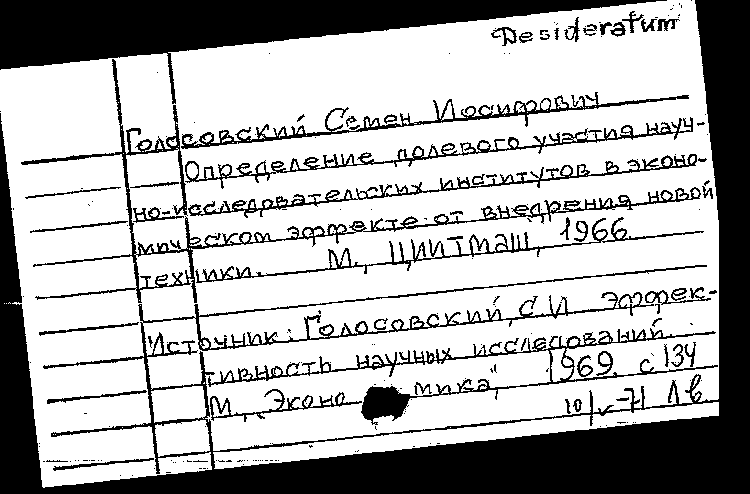 Desideratum
Голосовский Семен Иосифович
Определение долевого участия науч-
но-исследовательских институтов в эконо-
мическом эффекте от внедрения новой
техники. М., ЦНИИТМАШ, 1966
Источник: Голосовский, С.И Эффек-
тивность научных исследований.
М., "Эконо мика", 1969. с 134
10/V-71 Лв